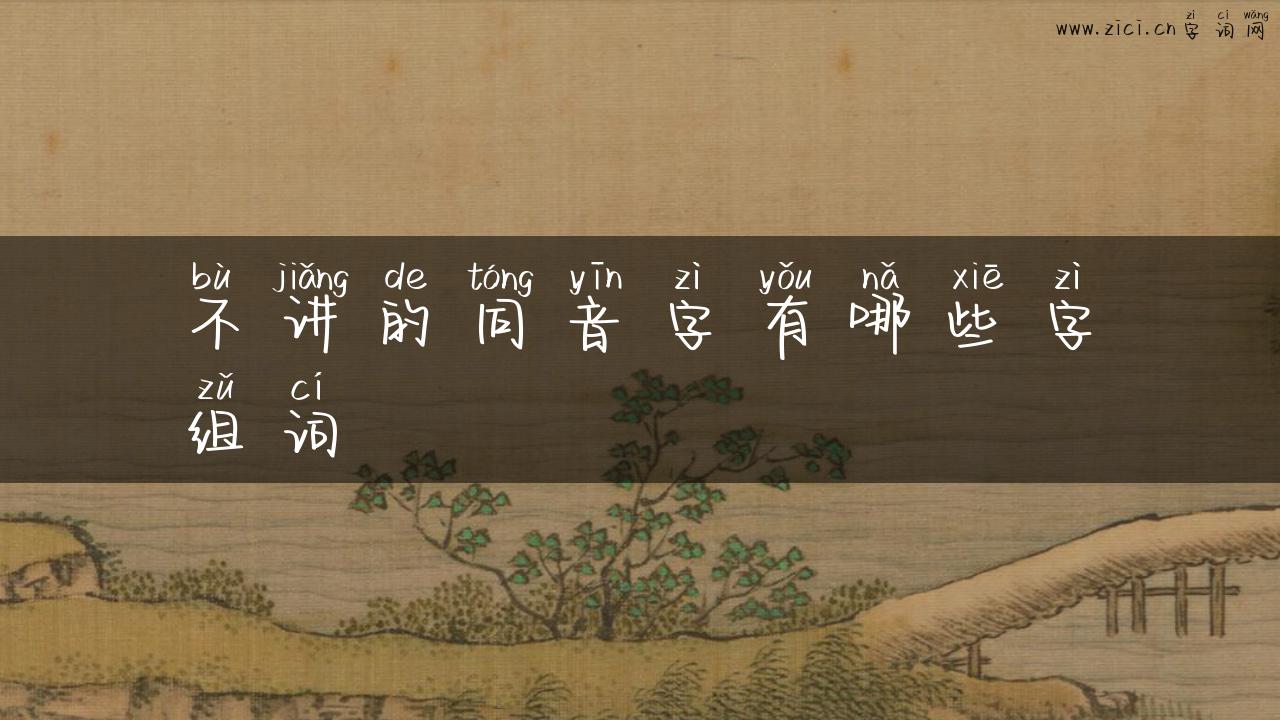 zì cí wǎng
www.zici.cn 字词网
bù jiǎng de tóng yīn zì yǒu nǎ xiē zì
不讲的同音字有哪些字
zǔ cí
组词